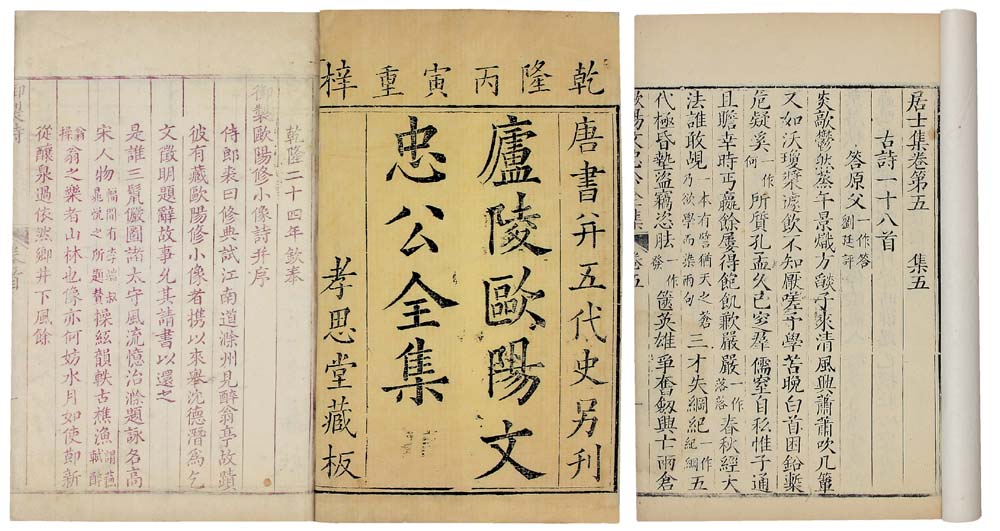 乾隆丙寅重梓
唐書并五代史另刊
廬陵歐陽文
忠公全集
孝思堂藏板
乾隆二十四年欽奉
御製歐陽修小像詩并序
侍郎裘曰修典試江南道滁州見醉翁亭故蹟
彼有藏歐陽修小像者攜以來舉沈德潛為乞
文徵明題辭故事允其請書以還之
是誰三鬣儼圖諸太守風流憶治滁題詠名高
宋人物幅間有李端叔晁悅之所題贊操絃韻軼古樵漁謂蘇軾醉
翁操翁之樂者山林也像亦何妨水月如使節新
從釀泉過依然卿井下風餘
御製詩
居士集卷第五 集五
古詩一十八首
答原父一作答劉廷評
炎歊鬱然蒸午景熾方燄子來清風興蕭蕭吹几簟
又如沃瓊漿遽飲不知厭嗟予學苦晚白首困鉛槧
危疑奚一作何所質孔孟久已窆羣儒窒自私惟子通
且贍幸時丐羸餘屢得飽飢歉嚴嚴一作落落春秋經大
法誰敢覘一本有譬猶天之蒼乃欲學而染兩句三才失綱紀一作紀綱五
代極昏墊盜竊恣胠一作發篋英雄爭奮劒興亡兩倉
卷五